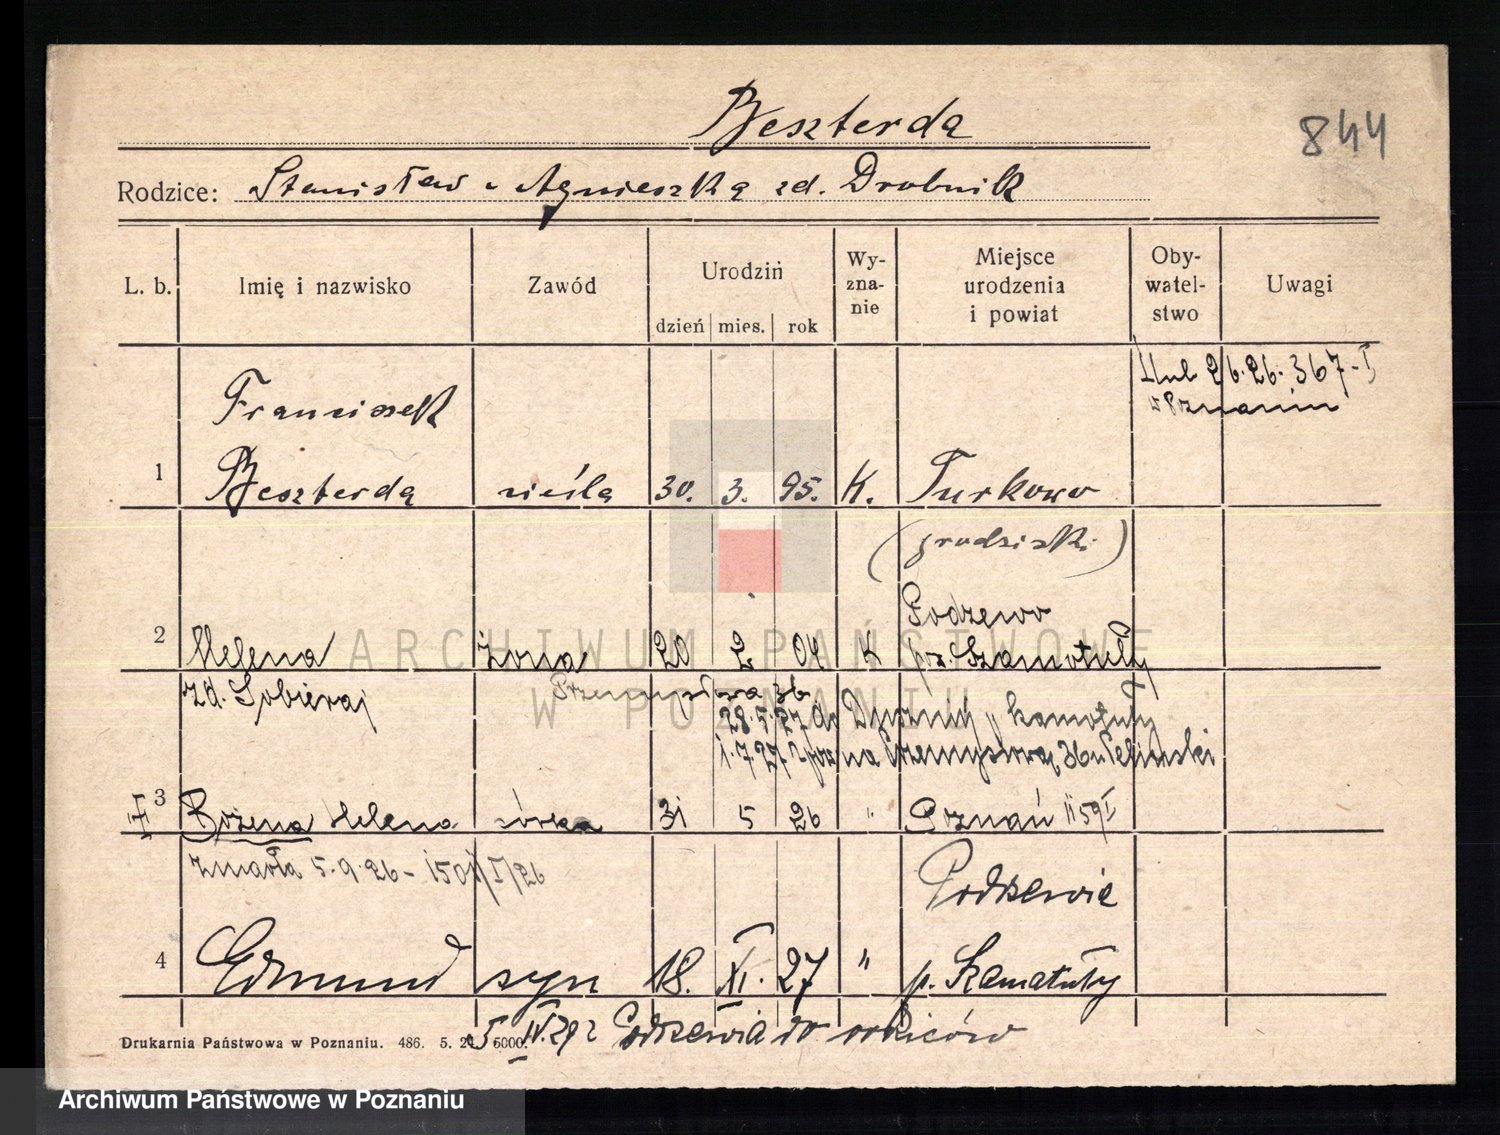 Beszterda
844
Rodzice: Stanisław i Agnieszka zd. Drobnik
L. b. Imię i nazwisko Zawód Urodzin dzień mies. rok Wyznanie Miejsce urodzenia i powiat Obywatelstwo Uwagi
ślub 26.26. 367-I
w Poznaniu
Franciszek
1 Beszterda cieśla 30. 3. 95. K. Turkowo
(grodziski)
Podrzewo
2 Helena żona 20 2 04 K pow. Szamotuły
zd. Sobieraj Przemysłowa 36
28.5.27 do Szamotuły
1.7.27 na Przemysłową 36
3 Bożena Helena córka 31 5 26 " Poznań 1159 I
zmarła 5.9.26 - I/26
Podrzewie
4 Edmund syn 18. XI. 27 " p. Szamotuły
5 IV.29 z Podrzewia do rodziców
Drukarnia Państwowa w Poznaniu. 486. 5. 5000.
ARCHIWUM PAŃSTWOWE
W POZNANIU
Archiwum Państwowe w Poznaniu